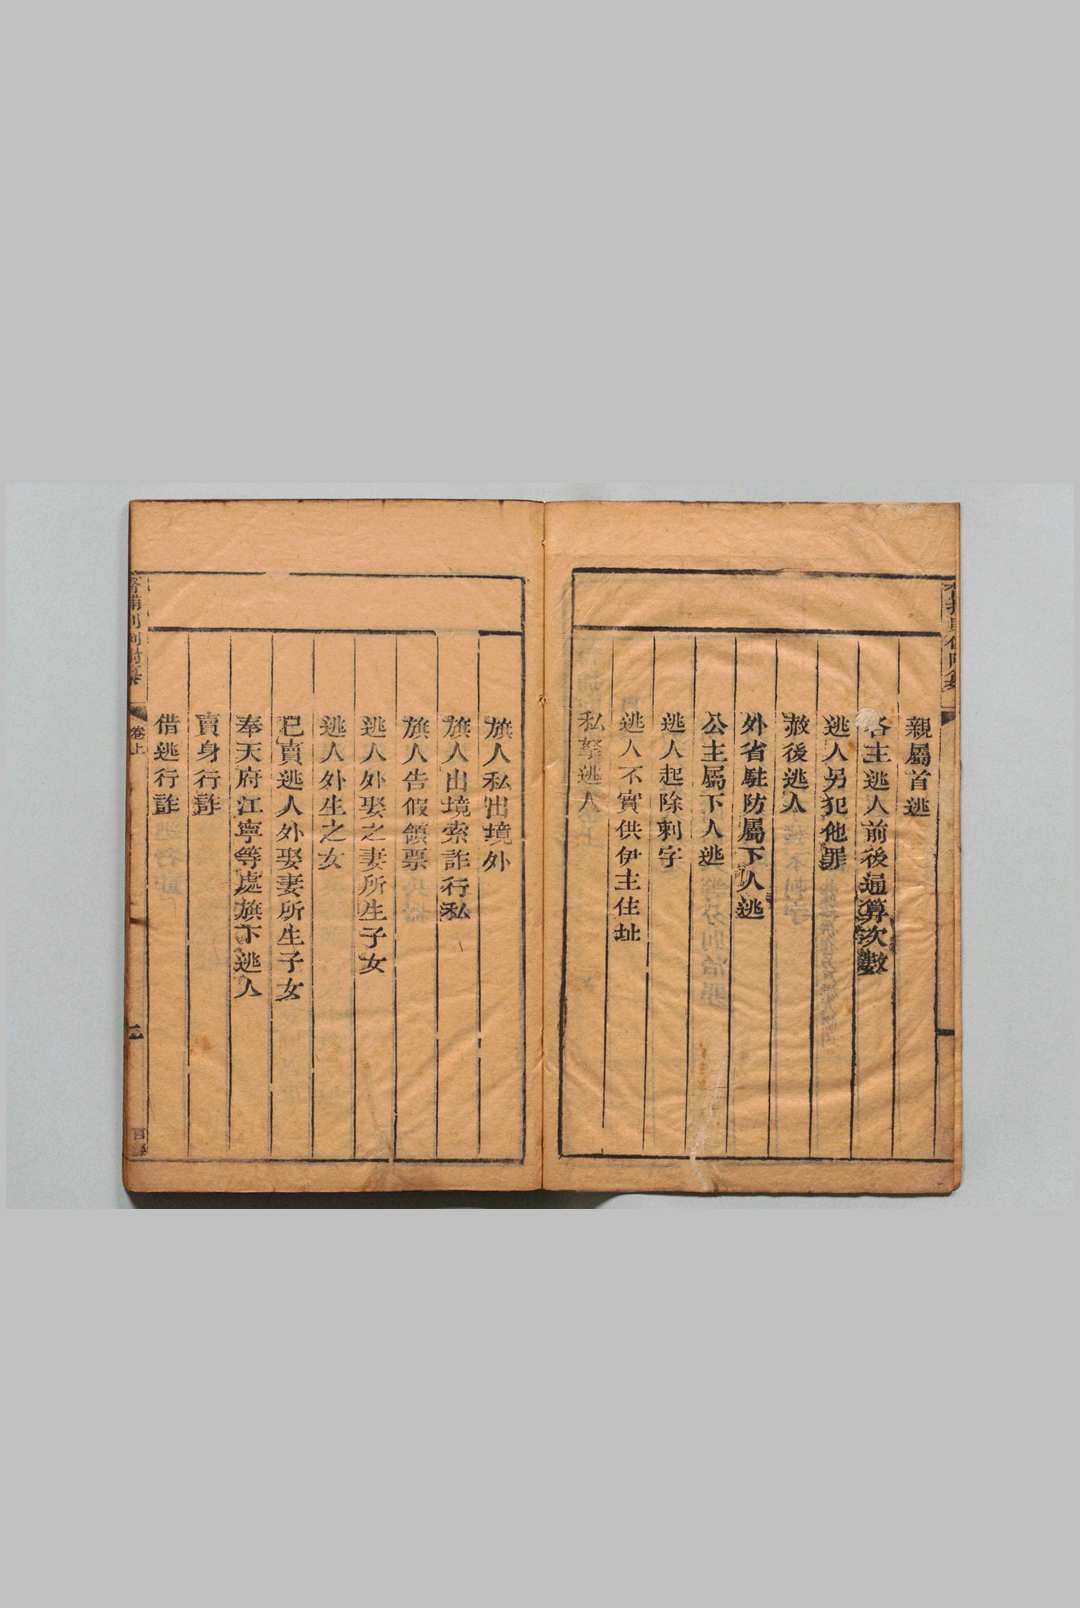 親屬首逃
各主逃人前後通算次數
逃人另犯他罪
赦後逃人
外省駐防屬下人逃
公主屬下人逃
逃人起除刺字
逃人不實供伊主住址
私拏逃人
旗人私出境外
旗人出境索詐行私
旗人告假領票
逃人外娶之妻所生子女
逃人外生之女
已賣逃人外娶妻所生子女
奉天府江寧等處旗下逃人
賣身行詐
借逃行詐
卷上
二